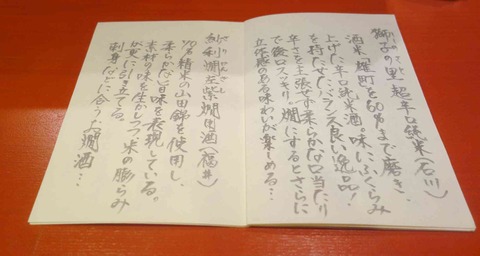 獅子の里 超辛口純米(石川)
酒米「雄町」を60%まで磨き、
上げた辛口純米酒。味にふくらみ
を持たせたバランス良い逸品!
辛さを主張せず柔らかな口当たり
で後口スッキリ、燗にするとさらに
立体感のある味わいが楽しめる…
剣利燗左紫燗用酒(福井)
70%精米の山田錦を使用し
柔らかな旨味を表現している。
素材の味を生かしつつ、米の膨らみ
が更に引き立てる。
刺身などに合うた燗酒…